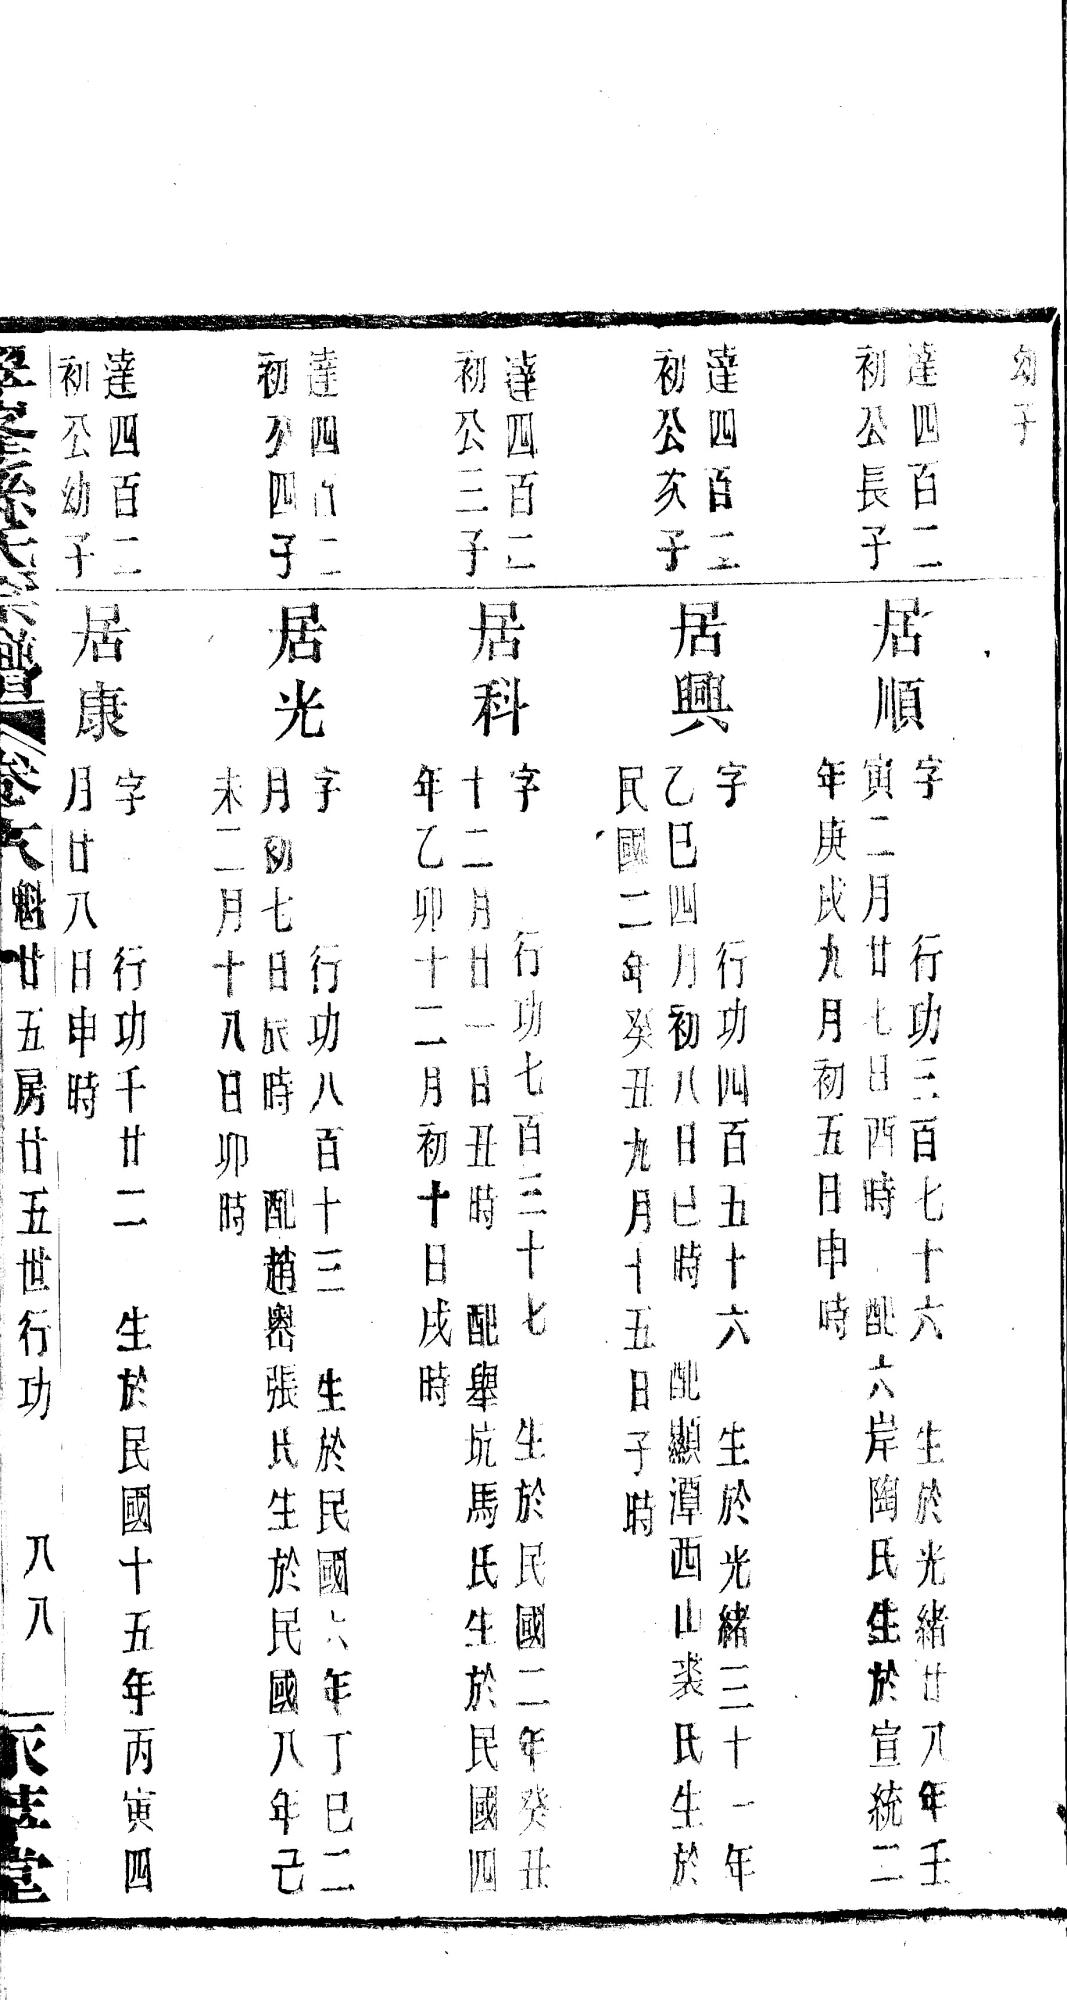 幼子
達四百二
初公長子
居順
字　行功三百七十六　生於光緒廿八年壬
寅二月廿七日酉時　配六岸陶氏生於宣統二
年庚戌九月初五日申時
達四百二
初公次子
居興
字　行功四百五十六　生於光緒三十一年
乙巳四月初八日巳時　配顯潭西山裘氏生於
民國二年癸丑九月十五日子時
達四百二
初公三子
居科
字　行功七百三十七　生於民國二年癸丑
十二月日一日丑時　配舉坑馬氏生於民國四
年乙卯十二月初十日戌時
達四百二
初公四子
居光
字　行功八百十三　生於民國六年丁巳二
月初七日辰時　配趙嶴張氏生於民國八年己
未二月十八日卯時
達四百二
初公幼子
居康
字　行功千廿二　生於民國十五年丙寅四
月廿八日申時
孫氏宗譜　卷六　魁廿五房廿五世行功　八八　堂